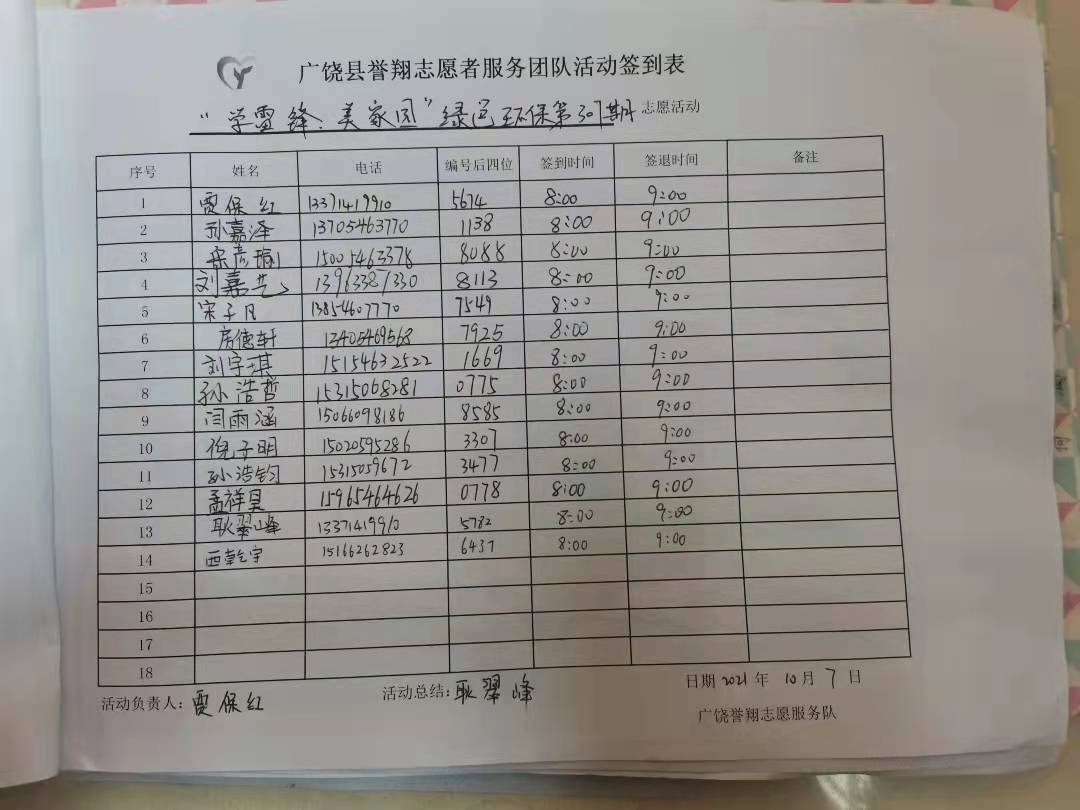 广饶县誉翔志愿者服务团队活动签到表
“学雷锋、美家园”绿色环保第307期 志愿活动
序号 姓名 电话 编号后四位 签到时间 签退时间 备注
1 贾保红 13371419910 5674 8:00 9:00
2 孙嘉泽 13705463770 1138 8:00 9:00
3 宋彦瑜 15005463378 8088 8:00 9:00
4 刘嘉艺 13963387330 8113 8:00 9:00
5 宋子凡 13854607770 7549 8:00 9:00
6 房德轩 13405469568 7925 8:00 9:00
7 刘宇琪 15154632522 1669 8:00 9:00
8 孙浩哲 15315068281 0775 8:00 9:00
9 闫雨涵 15066098186 8585 8:00 9:00
10 倪子明 15020595286 3307 8:00 9:00
11 孙浩钧 15315059672 3477 8:00 9:00
12 孟祥昊 15965464626 0778 8:00 9:00
13 耿翠峰 13371419910 5782 8:00 9:00
14 西乾宇 15166262823 6437 8:00 9:00
15
16
17
18
活动负责人：贾保红 活动总结：耿翠峰 日期 2021 年 10 月 7 日
广饶誉翔志愿服务队